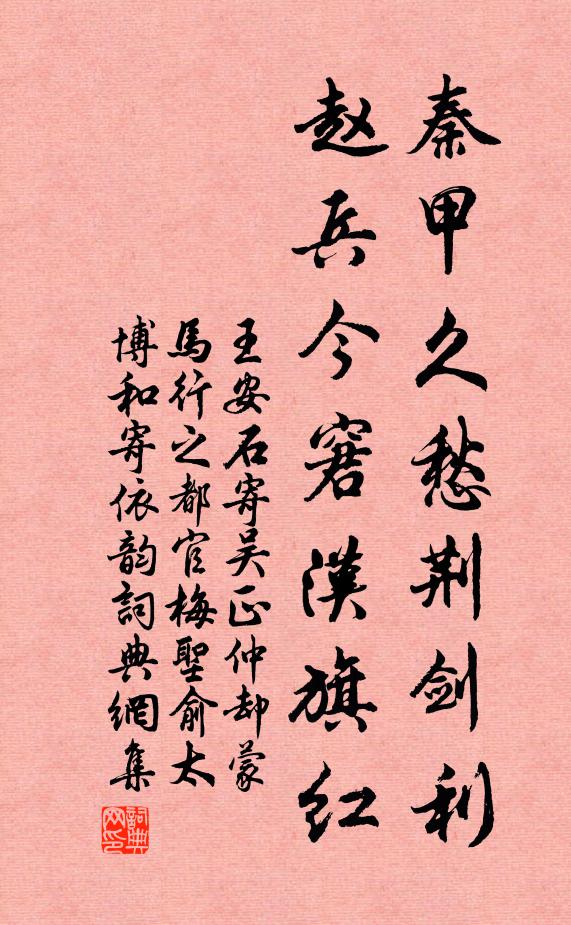 秦甲久愁荆剑利
赵兵今窘漢旗红
王安石寄吴正仲却蒙
馬行之都官梅聖俞太
博和寄依韵詞典網集
詞典网印